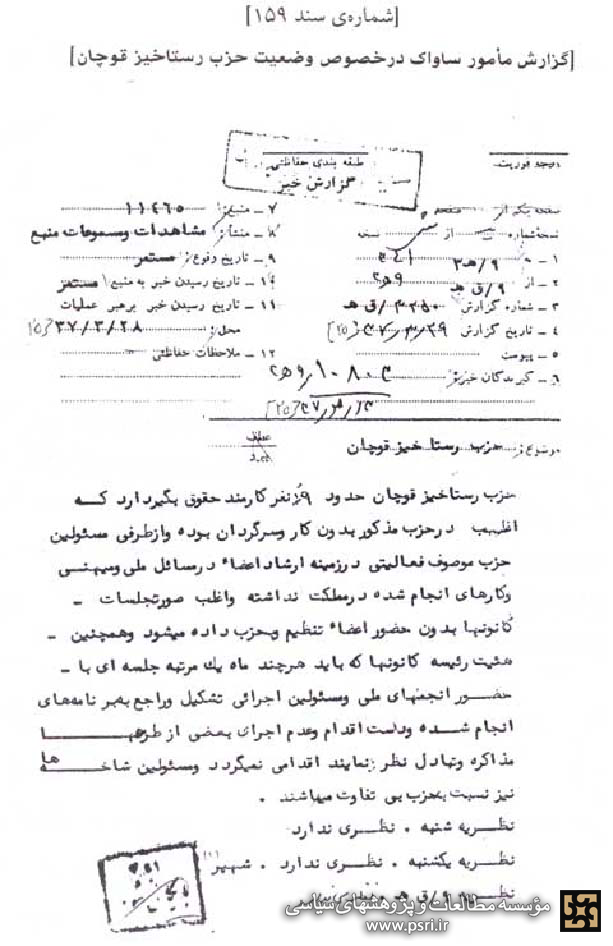 [شماره‌ی سند ۱۵۹]
[گزارش مأمور ساواک درخصوص وضعیت حزب رستاخیز قوچان]
طبقه بندی حفاظتی
گزارش خبر
درجه فوریت
صفحه یک از صفحه
نسخه شماره از نسخه
۱ - به ۳ه/۹ ۳۴۱
۲ - از ۹/ق ه ۲۵۹
۳ - شماره گزارش ۴۲۵۰/ق ه
۴ - تاریخ گزارش ۳۷/۳/۲۹[۲۵]
۵ - پیوست
۶ - گیرندگان خبر
۷ - منبع ۱۱۴۶۵
۸ - منشأ مشاهدات ومسموعات منبع
۹ - تاریخ وقوع مستمر
۱۰ - تاریخ رسیدن خبر به منبع مستمر
۱۱ - تاریخ رسیدن خبر برهبر عملیات
محل ۳۷/۳/۲۸[۲۵]
۱۲ - ملاحظات حفاظتی
موضوع حزب رستاخیز قوچان
عطف
حزب رستاخیز قوچان حدود نفر کارمند حقوق بگیر دارد کـه
اغلـب در حزب مذکور بدون کار وسرگردان بوده وازطرفی مسئولین
حزب موصوف فعالیتی درزمینه ارشاد اعضاء درمسائل ملی ومیهنـی
وکارهای انجام شده درمملکت نداشته واغلب صورتجلسات -
کانونها بدون حضور اعضاء تنظیم وبحزب داده میشود وهمچنین -
هئیت رئیسه کانونها که باید هرچند ماه یک مرتبه جلسه ای با -
حضـور انجمنهای ملی ومسئولین اجرائی تشکیل وراجع به برنامه‌های
انجام شـده وعلت اقدام وعدم اجرای بعضی از طرحهـا
مذاکره وتبادل نظر نمایند اقدامی نمیگردد ومسئولین شاخـه ها
نیز نسبت بحزب بی تفاوت میباشند .
نظـریه شنبه . نظـری ندارد.
نظـریه یکشنبه . نظـری ندارد . شهیر [۱]
نظـریه ۹/ق ه
مؤسسه مطالعات و پژوهشهای سیاسی
www.psri.ir